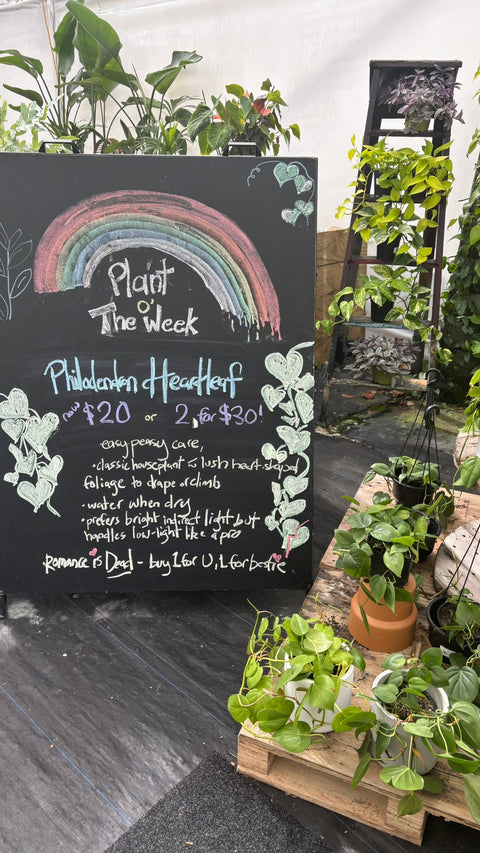 Plant
O'
The Week
Philodendron Heartleaf
now $20 or 2 for $30!
easy peasy care,
• classic houseplant w lush heart-shaped
foliage to drape or climb
• water when dry
• prefers bright indirect light but
handles low-light like a pro
Romance is Dead - buy 1 for U, 1 for bestie.